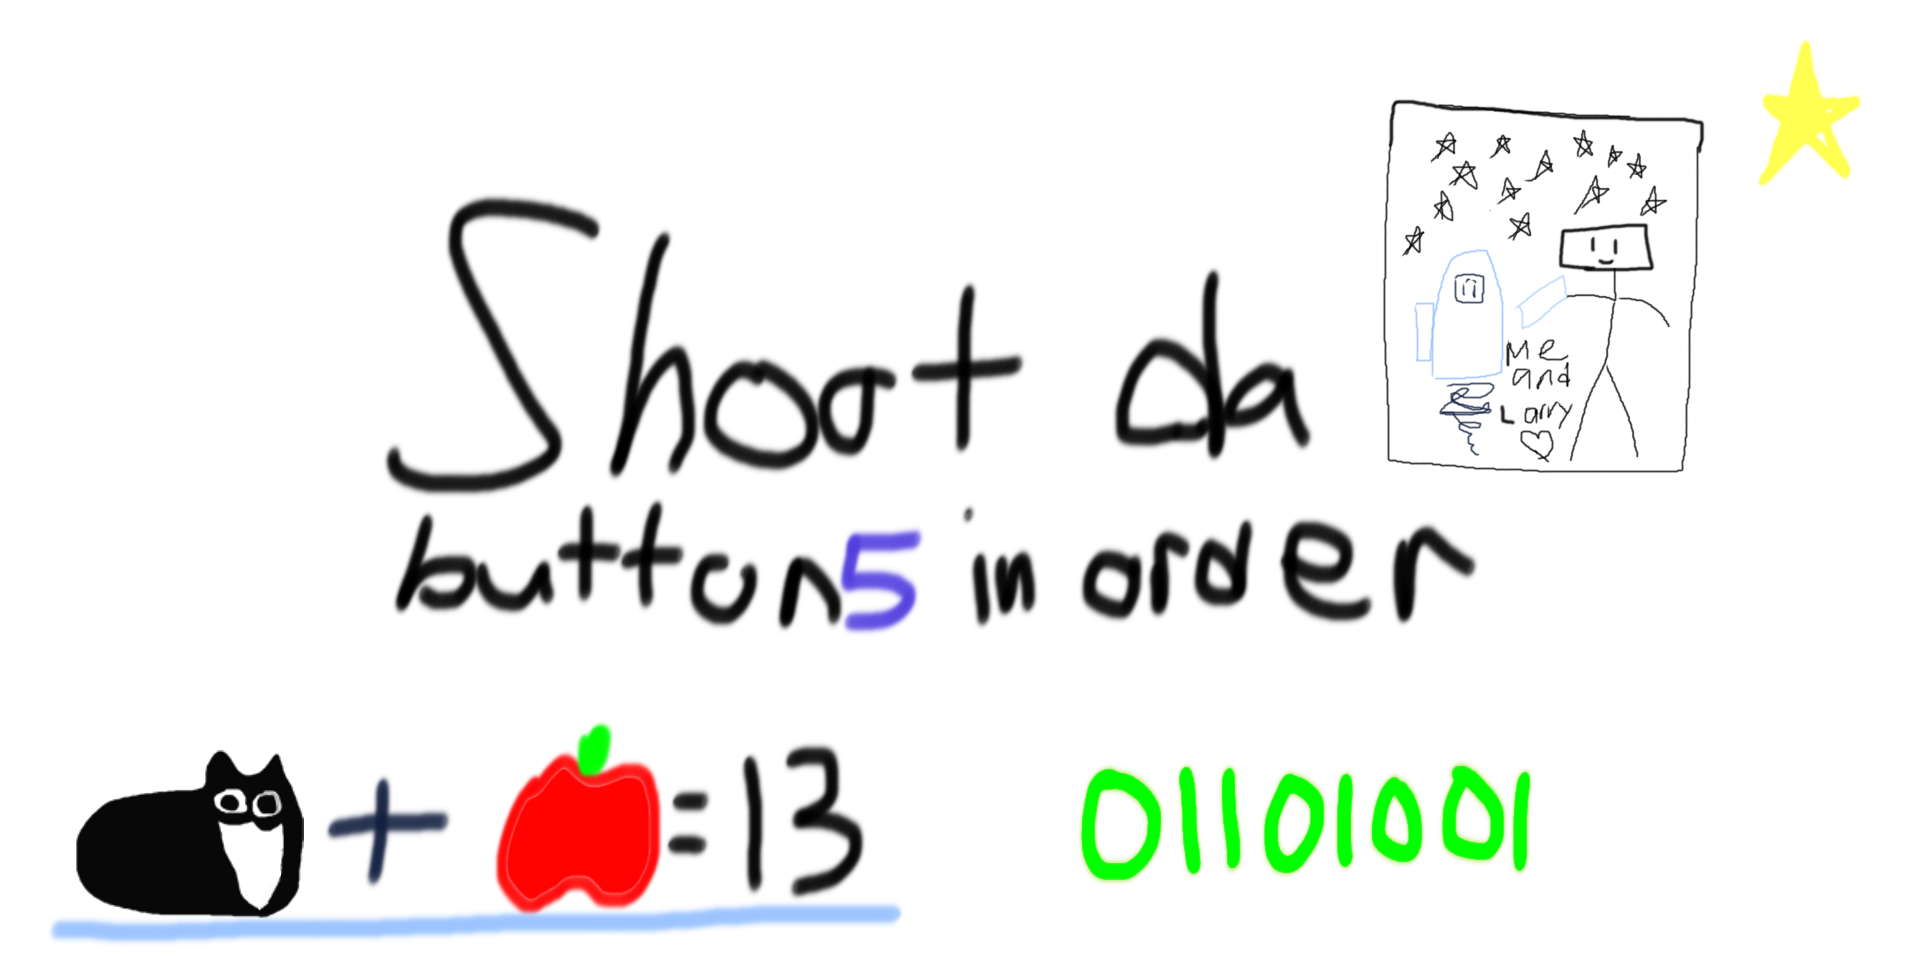 Shoot da
button5 in order
Me
and
Larry
+ = 13
01101001